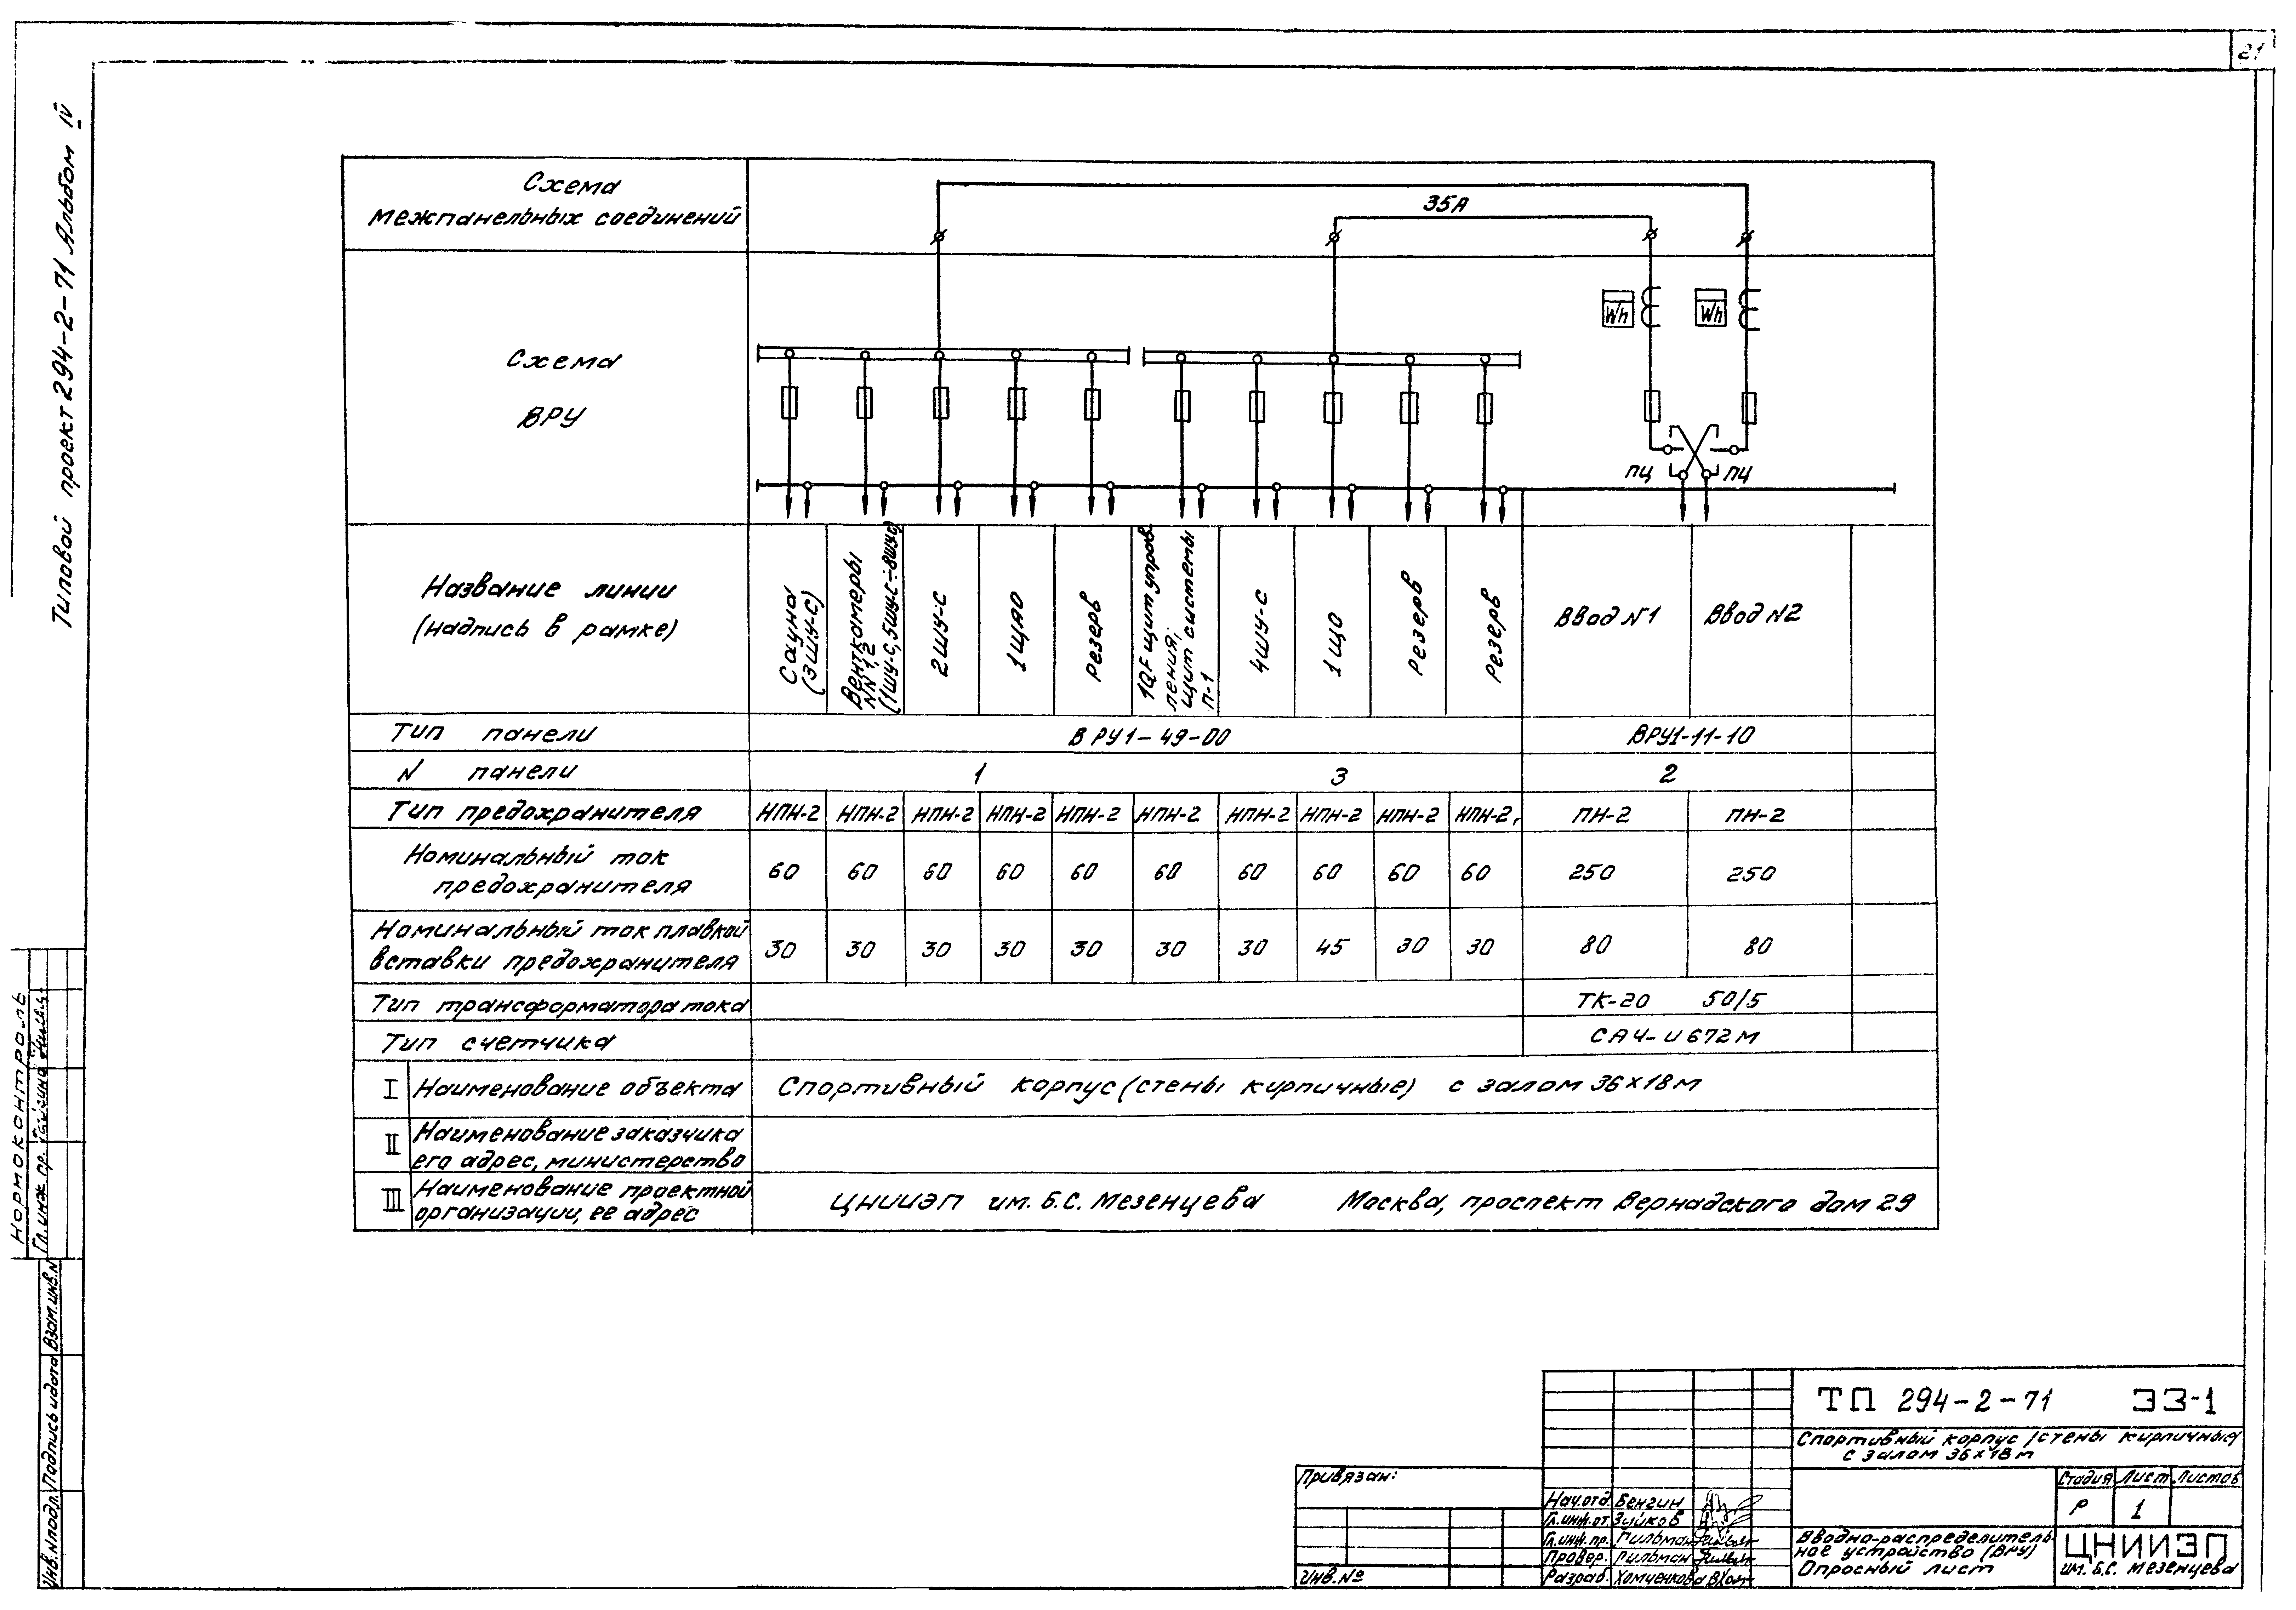 21
Типовой проект 294-2-71 Альбом IV
Схема
межпанельных соединений
35А
Схема
ВРУ
Wh
Wh
ПЦ
ПЦ
Название линии
(надпись в рамке)
Сауна
(3ШУ-С)
Венткамеры
NN 1,2
(1ШУ-С, 5ШУ-С÷8ШУС)
2ШУ-С
1ЩАО
Резерв
1QF щит управ
ления;
щит системы
П-1
4ШУ-С
1ЩО
Резерв
Резерв
Ввод N1
Ввод N2
Тип панели
ВРУ1-49-00
ВРУ1-11-10
N панели
1
3
2
Тип предохранителя
НПН-2 НПН-2 НПН-2 НПН-2 НПН-2 НПН-2 НПН-2 НПН-2 НПН-2 НПН-2 ПН-2 ПН-2
Номинальный ток
предохранителя
60 60 60 60 60 60 60 60 60 60 250 250
Номинальный ток плавкой
вставки предохранителя
30 30 30 30 30 30 30 45 30 30 80 80
Тип трансформатора тока
ТК-20 50/5
Тип счетчика
СА4-И672М
I Наименование объекта
Спортивный корпус (стены кирпичные) с залом 36х18м
II Наименование заказчика
его адрес, министерство
III Наименование проектной
организации, ее адрес
ЦНИИЭП им. Б.С. Мезенцева Москва, проспект Вернадского дом 29
Нормоконтроль
Гл. инж. пр.
Взам. инв. N
Подпись и дата
Инв. N подл.
ТП 294-2-71 ЭЗ-1
Спортивный корпус /стены кирпичные/
с залом 36х18м
Привязан:
Инв. №
Нач. отд. Бенгин
Гл. инж. от. Зуйков
Гл. инж. пр. Гильман
Провер. Гильман
Разраб. Хомченкова
Стадия Лист Листов
Р 1
Вводно-распределитель
ное устройство (ВРУ)
Опросный лист
ЦНИИЭП
им. Б.С. Мезенцева